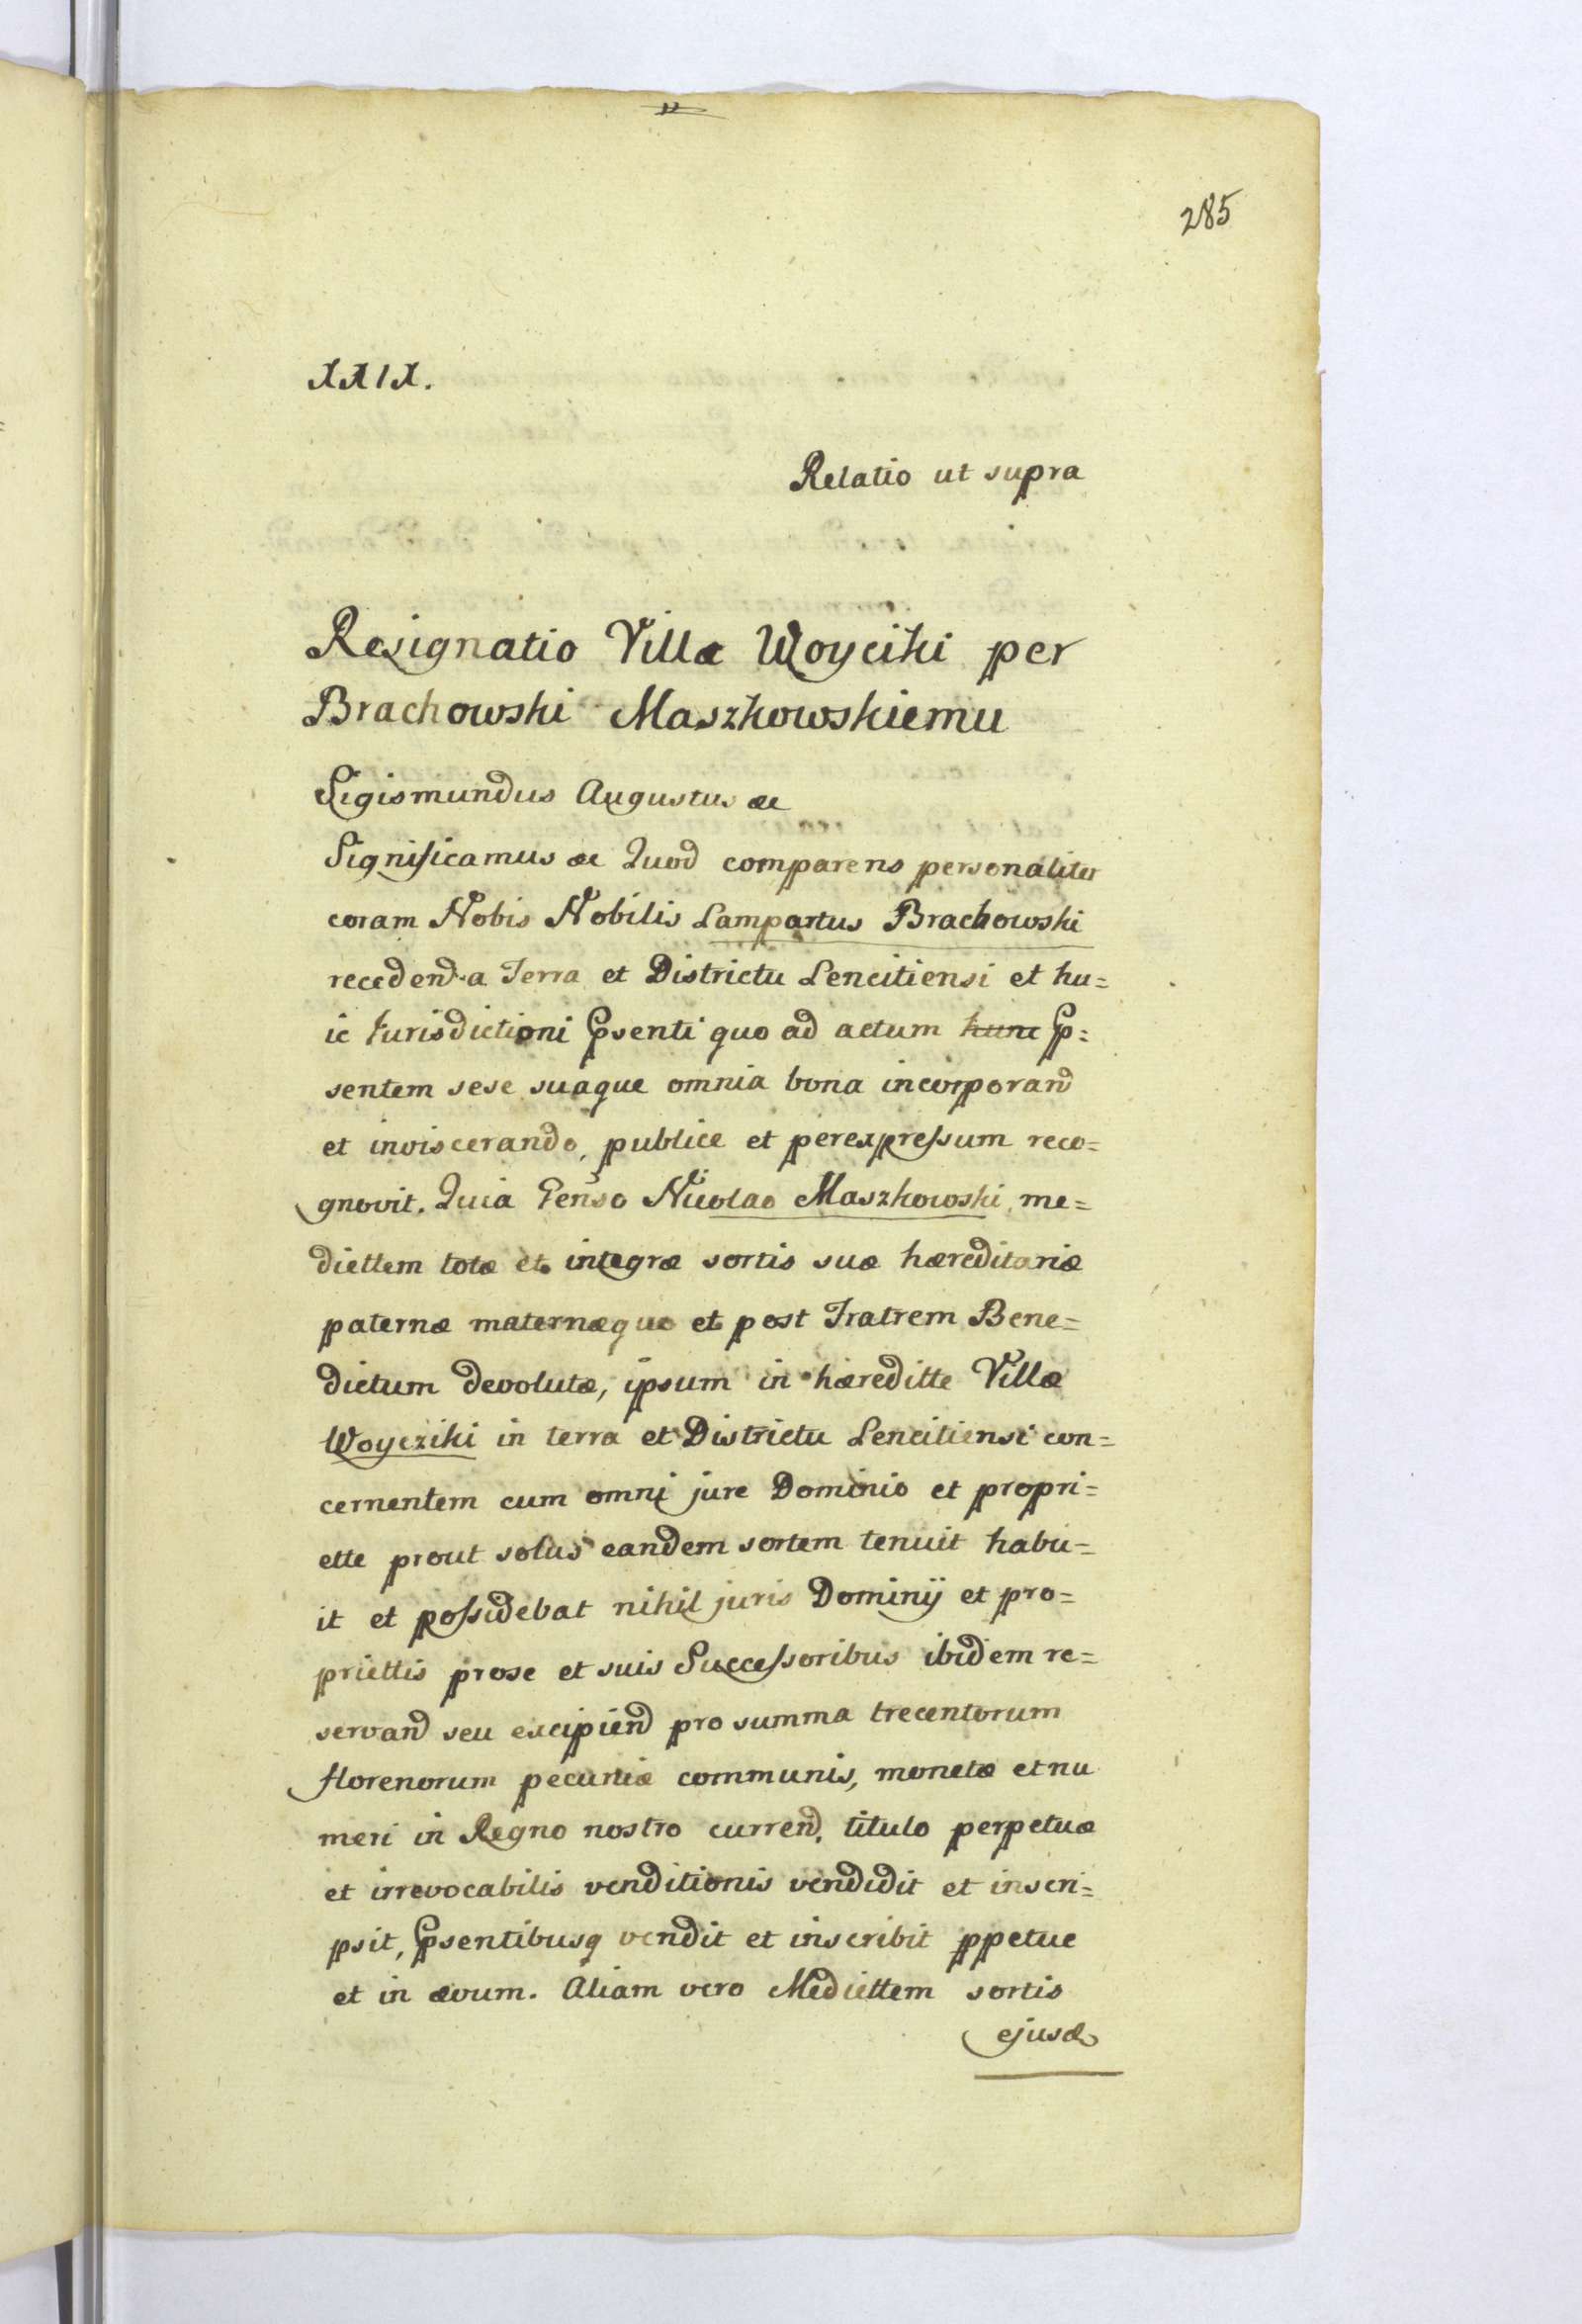 285
XXIX.
Relatio ut supra
Resignatio Villæ Woyciki per
Brachowski Maszkowskiemu
Sigismundus Augustus &c
Significamus &c Quod comparens personaliter
coram Nobis Nobilis Lampartus Brachowski
recedend. a Terra et Districtu Lencitiensi et hu=
ic Iurisdictioni Psenti quo ad actum hunc P=
sentem sese suaque omnia bona incorporand
et inviscerando, publice et perexpressum reco=
gnovit. Quia Genso Nicolao Maszkowski me=
diettem totæ et integræ sortis suæ hæreditariæ
paternæ maternæque et post Fratrem Bene=
dictum devolutæ, ipsum in hæreditte Villæ
Woycziki in terra et Districtu Lencitiensi con=
cernentem cum omni jure Dominio et propri=
ette prout solus eandem sortem tenuit habu=
it et possidebat nihil juris Dominij et pro=
priettis prose et suis Successoribus ibidem re=
servand seu excipiend pro summa trecentorum
florenorum pecuniæ communis, monetæ et nu
meri in Regno nostro currend. titulo perpetuæ
et irrevocabilis venditionis vendidit et inscri=
psit, Psentibusq vendit et inscribit ppetue
et in ævum. Aliam vero Mediettem sortis
ejusd